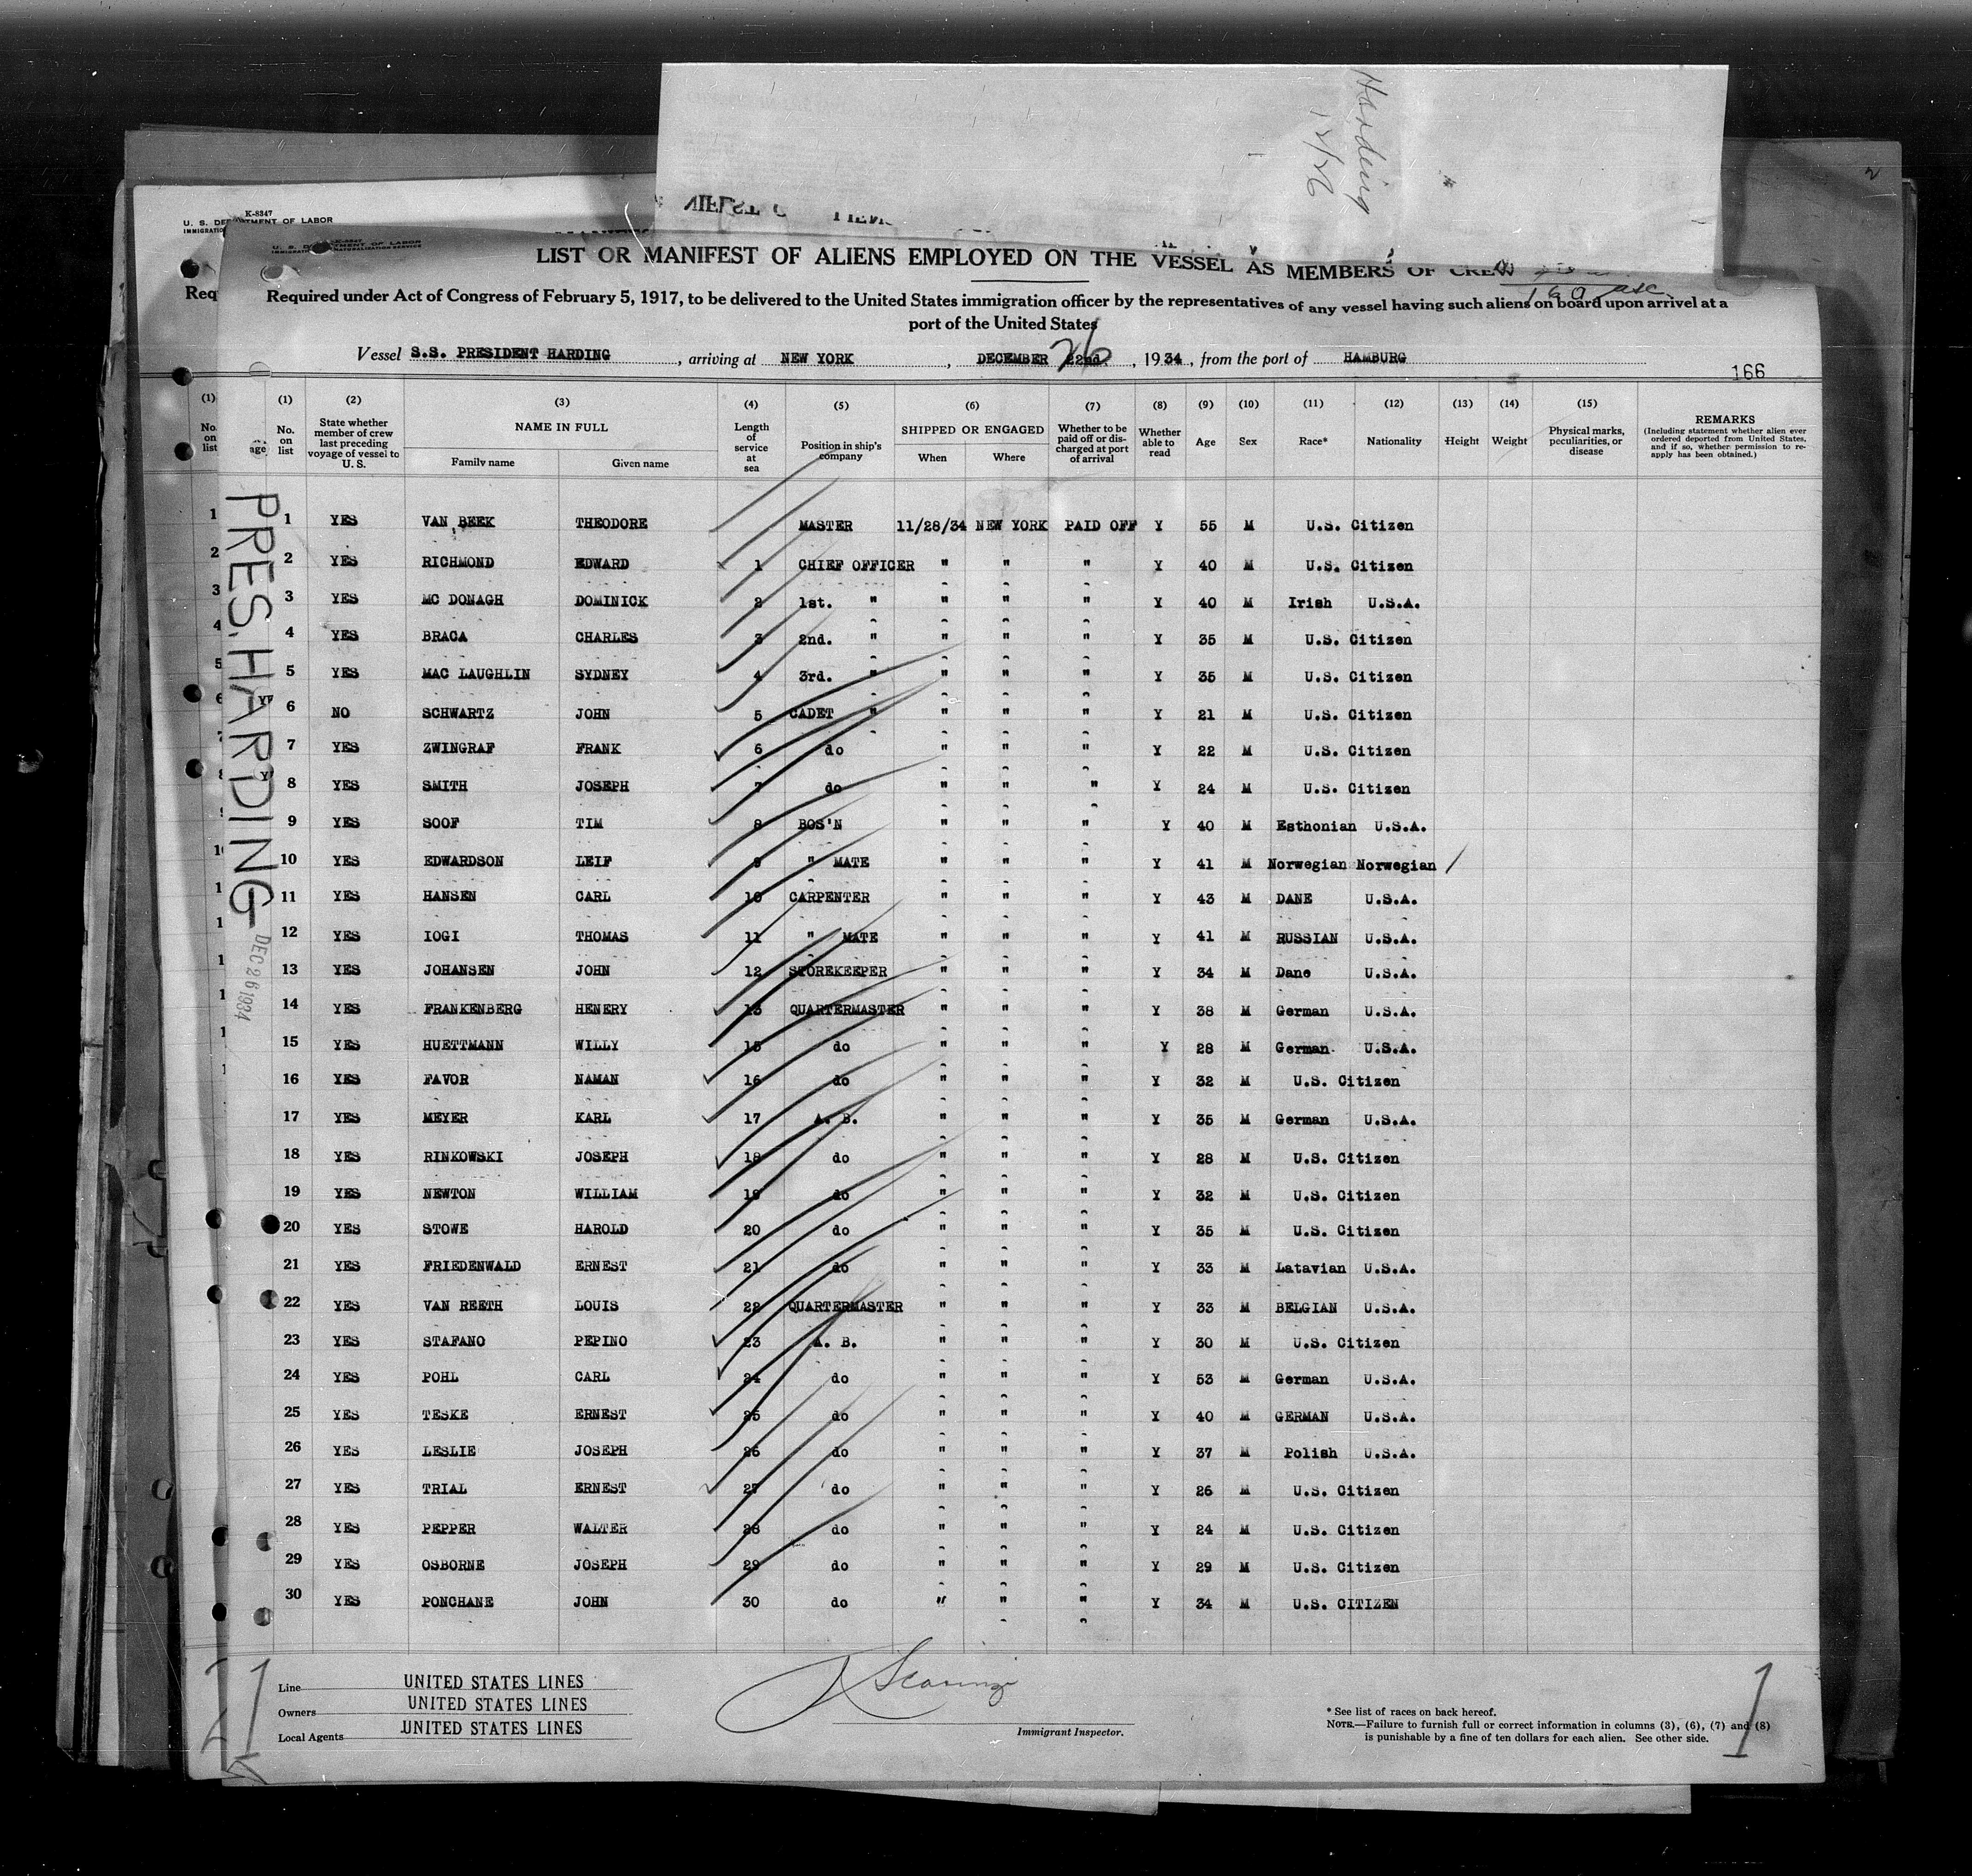 Harding
12/26
2
K-8347
U. S. DEPARTMENT OF LABOR
LIST OR MANIFEST OF ALIENS EMPLOYED ON THE VESSEL AS MEMBERS OF CREW
Required under Act of Congress of February 5, 1917, to be delivered to the United States immigration officer by the representatives of any vessel having such aliens on board upon arrival at a
port of the United States
Vessel S.S. PRESIDENT HARDING, arriving at NEW YORK, DECEMBER 22nd 26, 1934, from the port of HAMBURG
166
(1) (2) (3) (4) (5) (6) (7) (8) (9) (10) (11) (12) (13) (14) (15)
No. on list State whether member of crew last preceding voyage of vessel to U. S. NAME IN FULL Family name Given name Length of service at sea Position in ship's company SHIPPED OR ENGAGED When Where Whether to be paid off or discharged at port of arrival Whether able to read Age Sex Race* Nationality Height Weight Physical marks, peculiarities, or disease REMARKS (Including statement whether alien ever ordered deported from United States, and if so, whether permission to reapply has been obtained.)
PRES. HARDING
DEC 26 1934
1 YES VAN BEEK THEODORE MASTER 11/28/34 NEW YORK PAID OFF Y 55 M U.S. Citizen
2 YES RICHMOND EDWARD 1 CHIEF OFFICER " " " Y 40 M U.S. Citizen
3 YES MC DONAGH DOMINICK 2 1st. " " " " Y 40 M Irish U.S.A.
4 YES BRACA CHARLES 3 2nd. " " " " Y 35 M U.S. Citizen
5 YES MAC LAUGHLIN SYDNEY 4 3rd. " " " " Y 35 M U.S. Citizen
6 NO SCHWARTZ JOHN 5 CADET " " " " Y 21 M U.S. Citizen
7 YES ZWINGRAF FRANK 6 do " " " Y 22 M U.S. Citizen
8 YES SMITH JOSEPH 7 do " " " Y 24 M U.S. Citizen
9 YES SOOF TIM 8 BOS'N " " " Y 40 M Esthonian U.S.A.
10 YES EDWARDSON LEIF 9 " MATE " " " Y 41 M Norwegian Norwegian /
11 YES HANSEN CARL 10 CARPENTER " " " Y 43 M DANE U.S.A.
12 YES IOGI THOMAS 11 " MATE " " " Y 41 M RUSSIAN U.S.A.
13 YES JOHANSEN JOHN 12 STOREKEEPER " " " Y 34 M Dane U.S.A.
14 YES FRANKENBERG HENERY 13 QUARTERMASTER " " " Y 38 M German U.S.A.
15 YES HUETTMANN WILLY 15 do " " " Y 28 M German U.S.A.
16 YES FAVOR NAMAN 16 do " " " Y 32 M U.S. Citizen
17 YES MEYER KARL 17 A. B. " " " Y 35 M German U.S.A.
18 YES RINKOWSKI JOSEPH 18 do " " " Y 28 M U.S. Citizen
19 YES NEWTON WILLIAM 19 do " " " Y 32 M U.S. Citizen
20 YES STOWE HAROLD 20 do " " " Y 35 M U.S. Citizen
21 YES FRIEDENWALD ERNEST 21 do " " " Y 33 M Latavian U.S.A.
22 YES VAN REETH LOUIS 22 QUARTERMASTER " " " Y 33 M BELGIAN U.S.A.
23 YES STAFANO PEPINO 23 A. B. " " " Y 30 M U.S. Citizen
24 YES POHL CARL 24 do " " " Y 53 M German U.S.A.
25 YES TESKE ERNEST 25 do " " " Y 40 M GERMAN U.S.A.
26 YES LESLIE JOSEPH 26 do " " " Y 37 M Polish U.S.A.
27 YES TRIAL ERNEST 27 do " " " Y 26 M U.S. Citizen
28 YES PEPPER WALTER 28 do " " " Y 24 M U.S. Citizen
29 YES OSBORNE JOSEPH 29 do " " " Y 29 M U.S. Citizen
30 YES PONCHANE JOHN 30 do " " " Y 34 M U.S. CITIZEN
Line UNITED STATES LINES
Owners UNITED STATES LINES
Local Agents UNITED STATES LINES
Immigrant Inspector.
* See list of races on back hereof.
NOTE.—Failure to furnish full or correct information in columns (3), (6), (7) and (8)
is punishable by a fine of ten dollars for each alien. See other side.